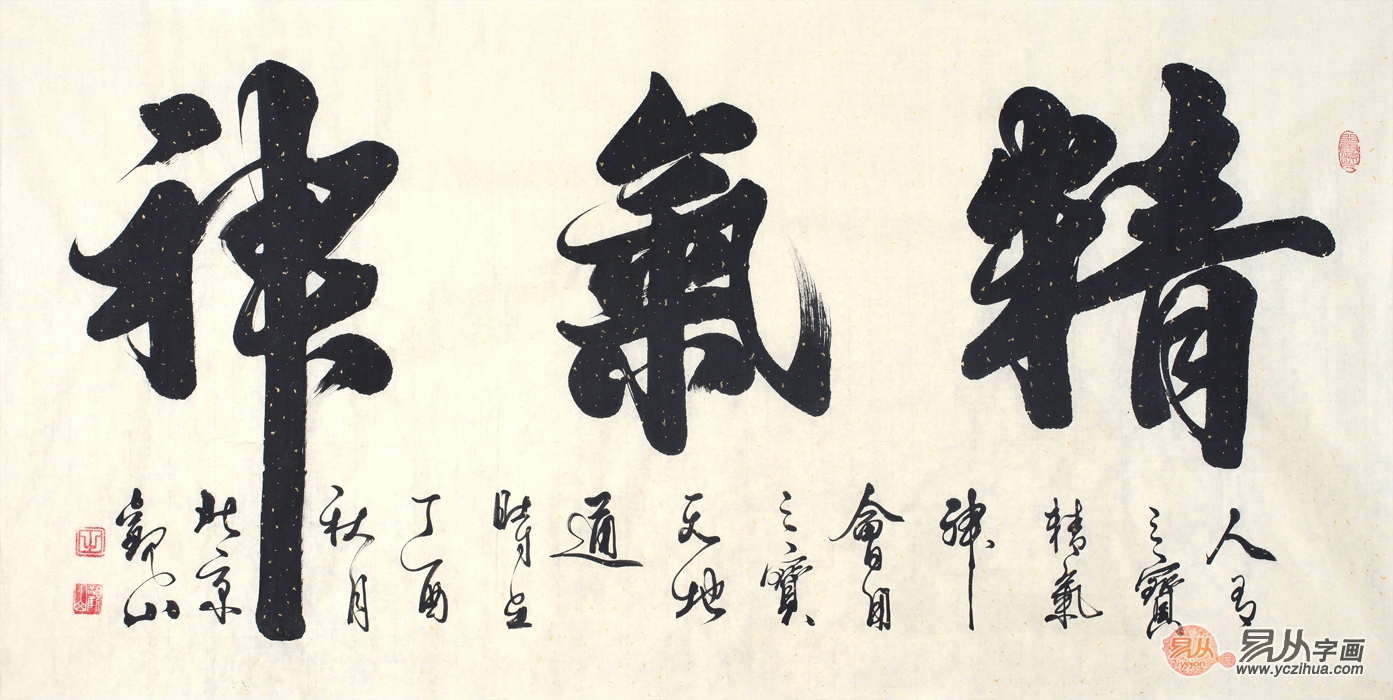 精氣神
人有
三寶
精氣
神
會用
三寶
天地
通
時
丁酉
秋月
北京
觀山
易从字画
www.yczihua.com